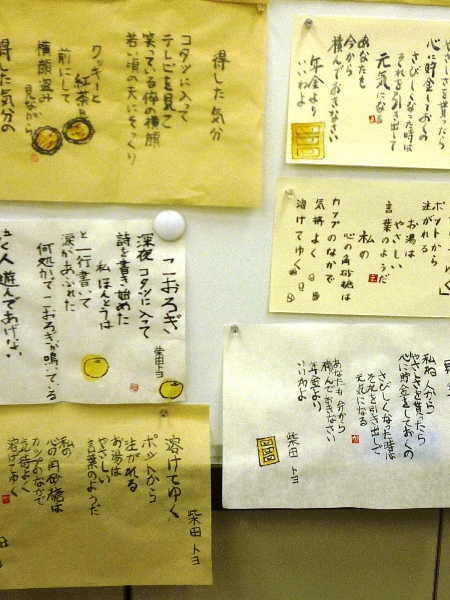 得した気分
コタツに入って
テレビを見て
笑っている倅の横顔
若い頃の夫にそっくり
クッキーと
紅茶を
前にして
横顔盗み
見ながら
得した気分の
やさしさを貰ったら
心に貯金しておくの
さびしくなった時は
それを引き出して
元気になる
あなたも
今から
積んでおきなさい
年金より
いいわよ
ポットから
注がれる
お湯は
やさしい
言葉のようだ
私の
心の角砂糖は
カップのなかで
気持よく
溶けてゆく
こおろぎ
柴田トヨ
深夜 コタツに入って
詩を書き始めた
私 ほんとうは
と一行書いて
涙があふれた
何処かで こおろぎが鳴いている
く人遊んであげない
私ね 人から
やさしさを貰ったら
心に貯金をしておくの
さびしくなった時は
それを引き出して
元気になる
あなたも 今から
積んでおきなさい
年金より
いいわよ
柴田 トヨ
柴田 トヨ
溶けてゆく
ポットから
注がれる
お湯は
やさしい
言葉のようだ
私の
心の角砂糖は
カップのなかで
気持よく
溶けてゆく